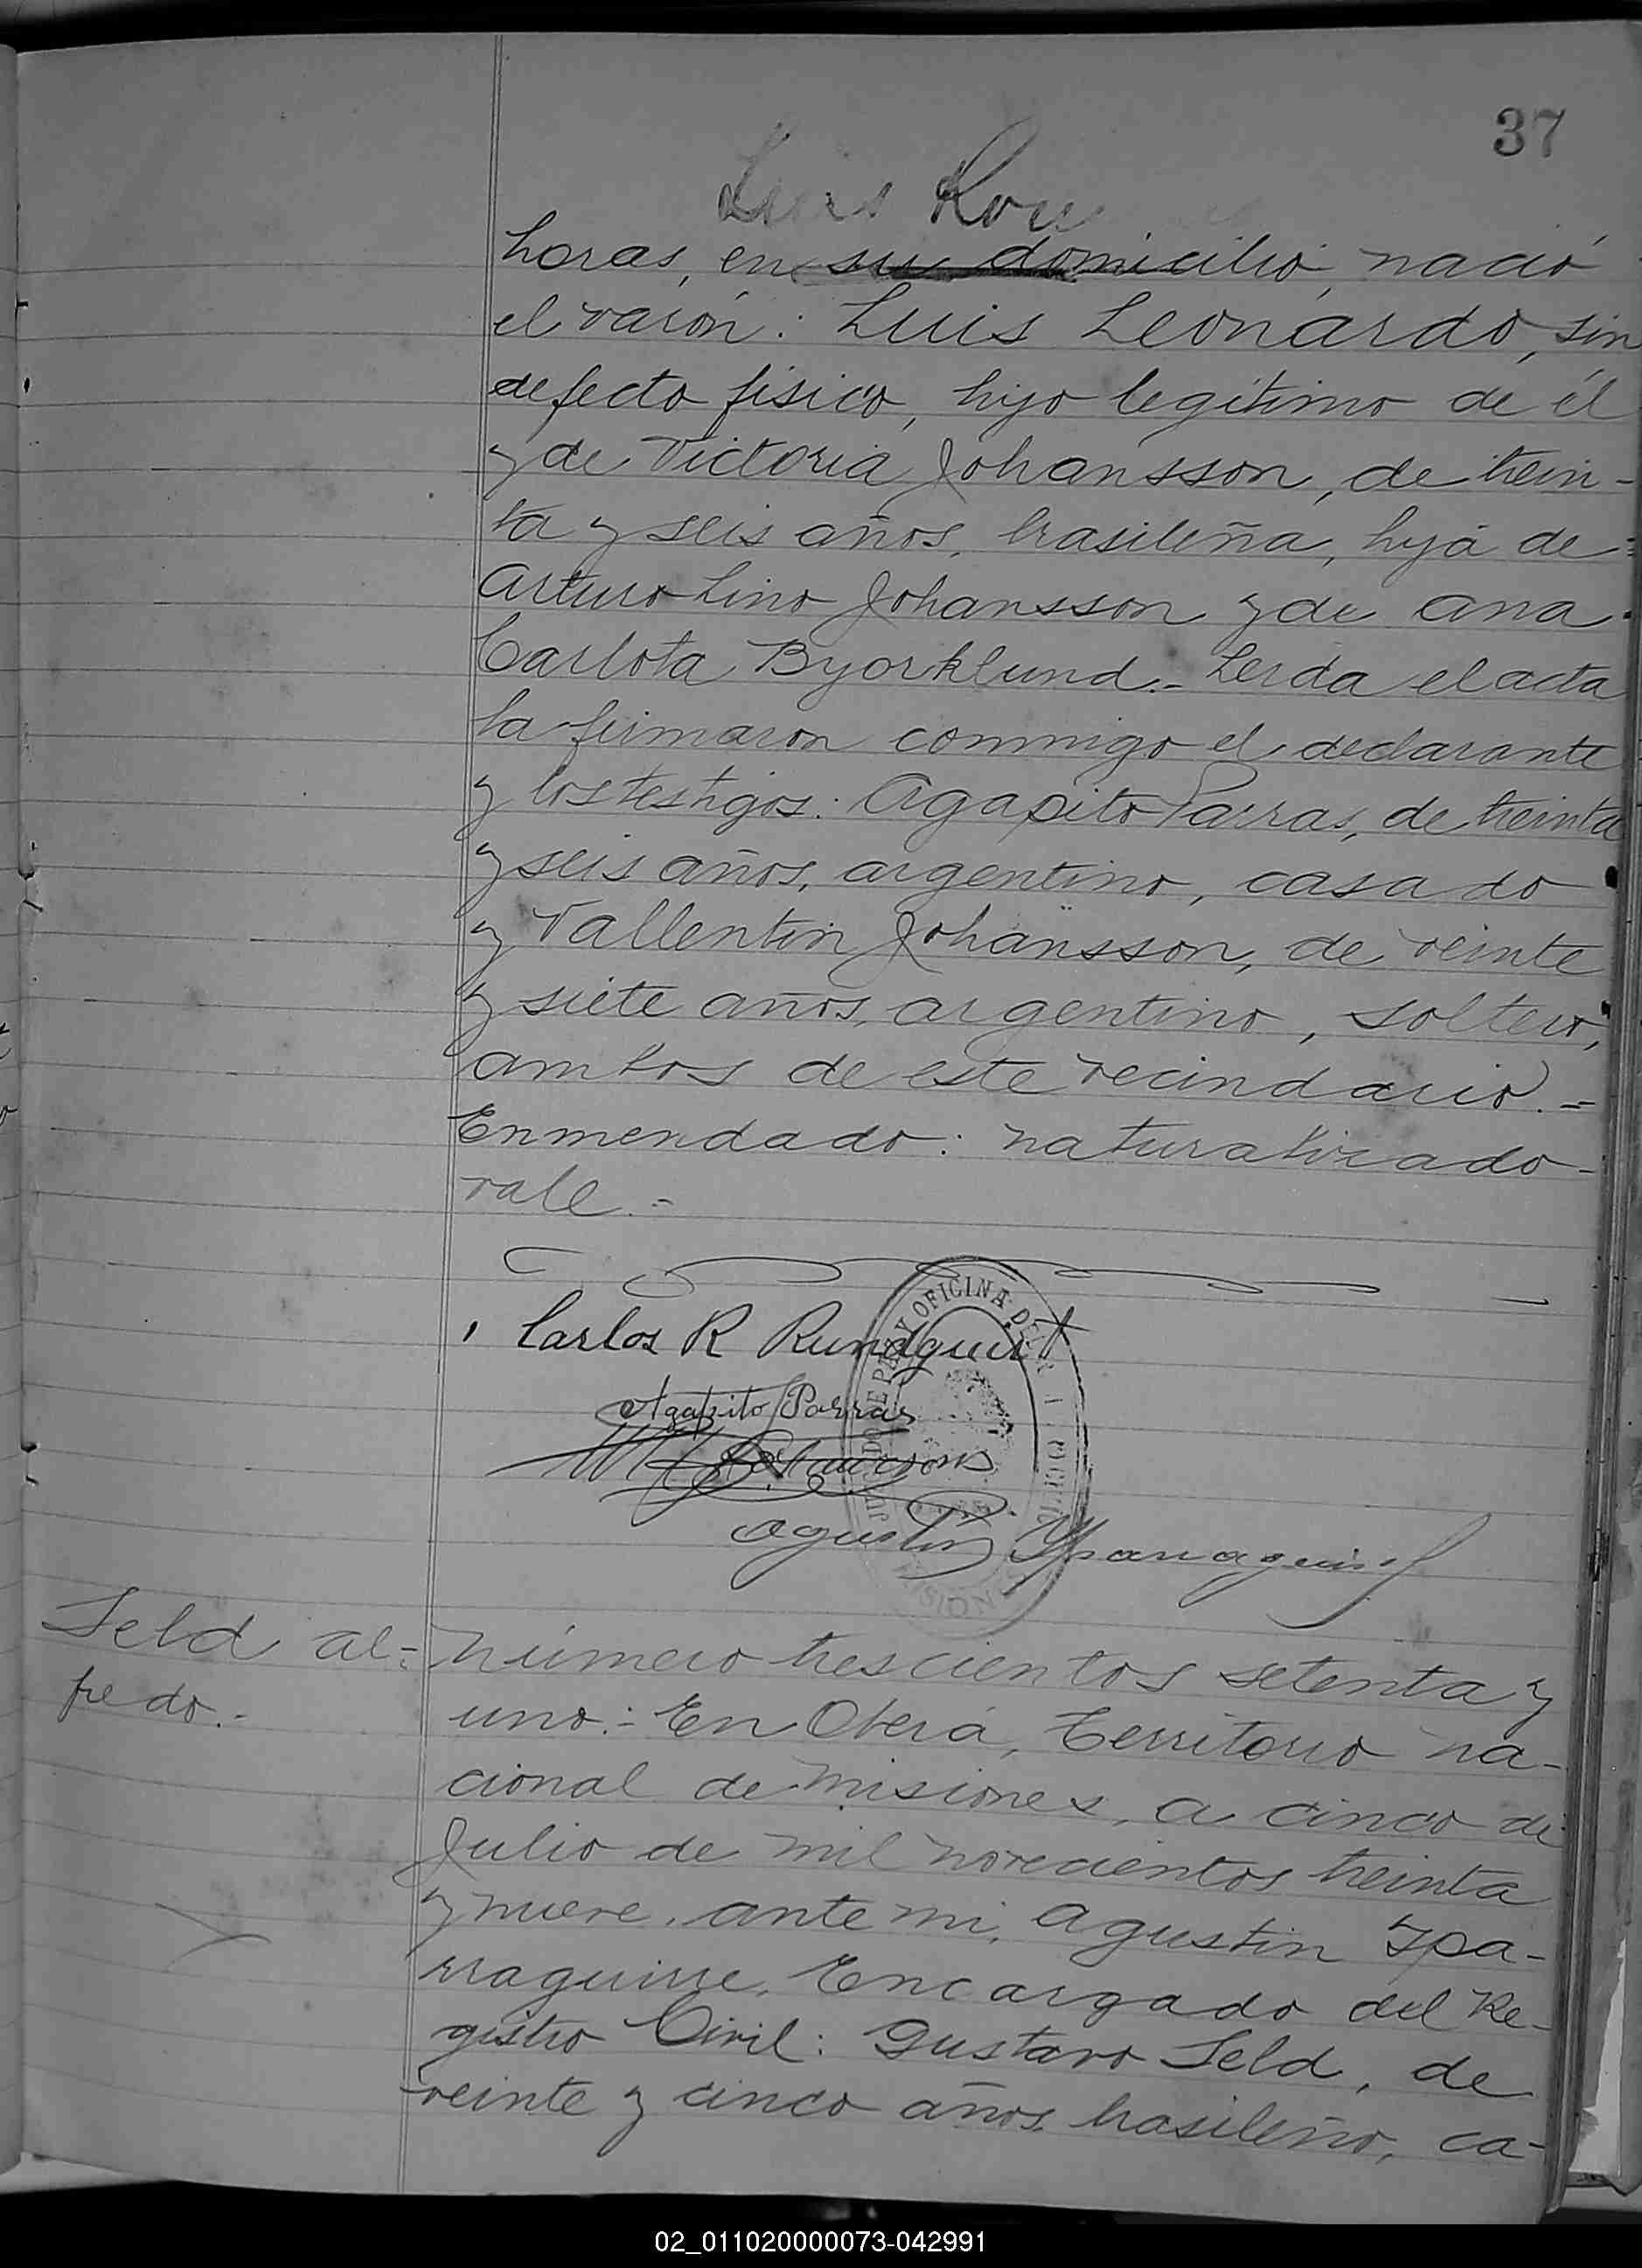 37
Luis
horas, en su domicilio, nació
el varón: Luis Leonardo, sin
defecto físico, hijo legítimo de él
y de Victoria Johansson, de trein-
ta y seis años, brasileña, hija de
Arturo Lino Johansson y de Ana
Carlota Byorklund.- Leída el acta
la firmaron conmigo el declarante
y los testigos: Agapito Parras, de treinta
y seis años, argentino, casado
y Vallentin Johansson, de veinte
y siete años, argentino, soltero,
ambos de este vecindario.-
Enmendado: naturalizado-
vale.-
Carlos R Rundquist
Agapito Parras
Agustín Yparraguirre
Seld Al-
fredo.-
Número trescientos setenta y
uno:- En Oberá, Territorio Na-
cional de Misiones, a cinco de
Julio de mil novecientos treinta
y nueve, ante mi, Agustin Ypa-
rraguirre, Encargado del Re-
gistro Civil: Gustavo Seld, de
veinte y cinco años, brasileño, ca-
02_011020000073-042991